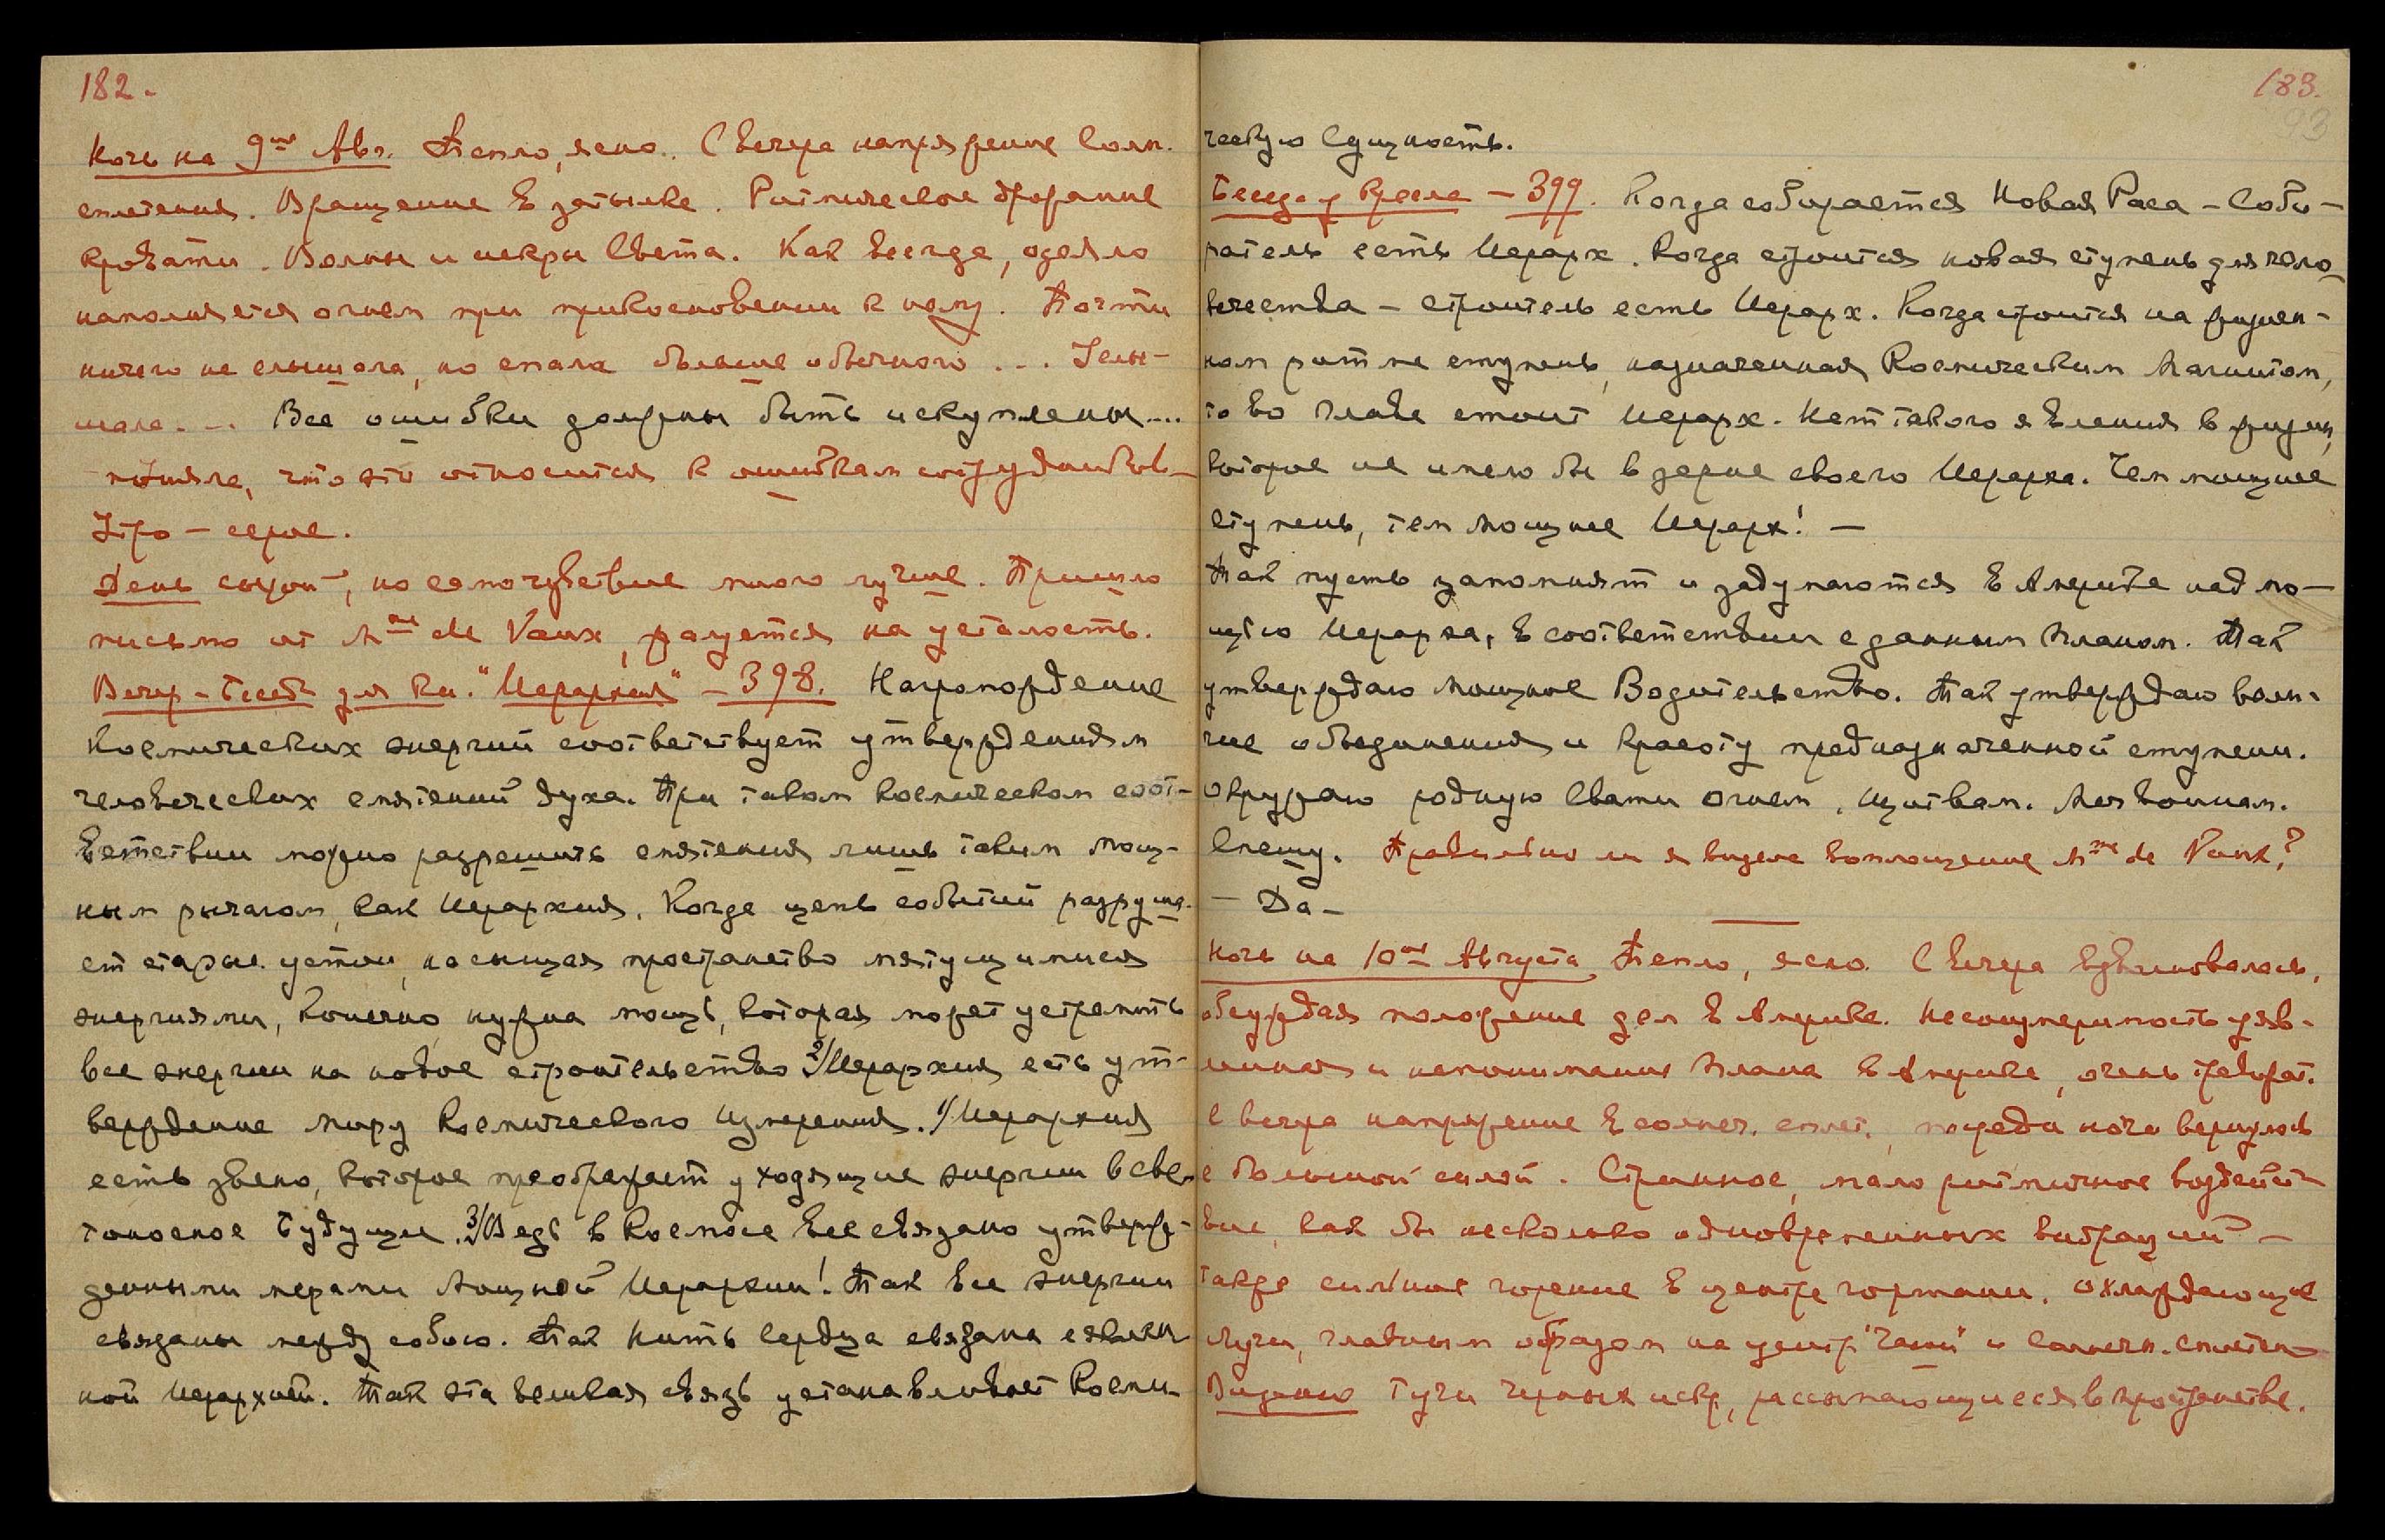 182.
Ночь на 9ое Авг. Тепло, ясно. С вечера напряжение Солн.
сплетения. Вращение в затылке. Ритмическое дрожание
кровати. Волны и искры Света. Как всегда, одеяло
наполняется огнем при прикосновении к нему. Почти
ничего не слышала, но спала больше обычного ... Услы-
шала ... Все ошибки должны быть искуплены....
поняла, что это относится к ошибкам сотрудников—
Утро — серое.
День сырой, но самочувствие много лучше. Пришло
письмо от Mme de Vaux, жалуется на усталость.
Вечер - Бесед. для кн. "Иерархия" — 398. Нагромождение
космических энергий соответствует утверждениям
человеческих смятений духа. При таком космическом соот-
ветствии можно разрешить смятения лишь таким мощ-
ным рычагом, как Иерархия. Когда цепь событий разруша-
ет старые устои, насыщая пространство мятущимися
энергиями, конечно, нужна мощь, которая может устремить
все энергии на новое строительство 2/Иерархия есть ут-
верждение миру Космического Измерения. 1/Иерархия
есть звено, которое преображает уходящие энергии в све-
тоносное Будущее. 3/Ведь в Космосе все связано утверж-
денными мерами Мощной Иерархии! Так все энергии
связаны между собою. Так нить Сердца связана с явлен-
ной Иерархией. Так эта великая связь устанавливает Косми-
183.
93
ческую Сущность.
Беседа у Кресла — 399. Когда собирается Новая Раса — Соби-
ратель есть Иерарх. Когда строится новая ступень для чело-
вечества — строитель есть Иерарх. Когда строится на жизнен-
ном ритме ступень, назначенная Космическим Магнитом,
то во главе стоит Иерарх. Нет такого явления в жизни,
которое не имело бы в зерне своего Иерарха. Чем мощнее
ступень, тем мощнее Иерарх! —
Так пусть запомнят и задумаются в Америке над мо-
щью Иерарха, в соответствии с данным планом. Так
утверждаю мощное Водительство. Так утверждаю вели-
чие объединения и красоту предназначенной ступени.
Окружаю родную Свати огнем. Щит вам. Меч воинам.
Спешу. Правильно ли я видела воплощение Mme de Vaux?
— Да —
Ночь на 10ое Августа Тепло, ясно. С вечера взволновалась,
обсуждая положение дел в Америке. Несоизмеримость
и непонимание Плана в Америке, очень тревожат.
С вечера напряжение в солнеч. сплет., посреди ночи вернулось
с большой силой. Странное, мало ритмичное воздейст-
вие, как бы несколько одновременных вибраций —
также сильное горение в центре гортани. Охлаждающие
лучи, главным образом на центр "Чаши" и Солнечн. сплетен—
Видение Тучи черных искр, рассыпающиеся в пространстве.